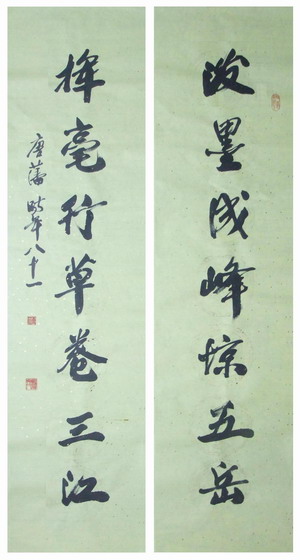 泼墨成峰惊五岳
挥毫行草卷三江
唐藩时年八十一